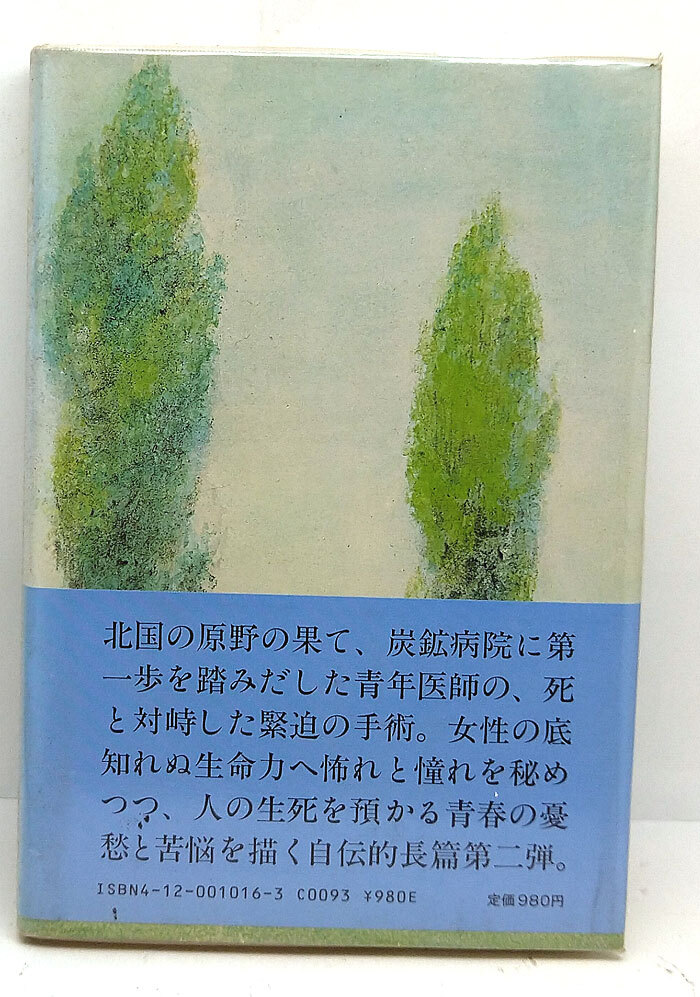 北国の原野の果て、炭鉱病院に第
一歩を踏みだした青年医師の、死
と対峙した緊迫の手術。女性の底
知れぬ生命力へ怖れと憧れを秘め
つつ、人の生死を預かる青春の憂
愁と苦悩を描く自伝的長篇第二弾。
ISBN4-12-001016-3 C0093 ¥980E 定価980円